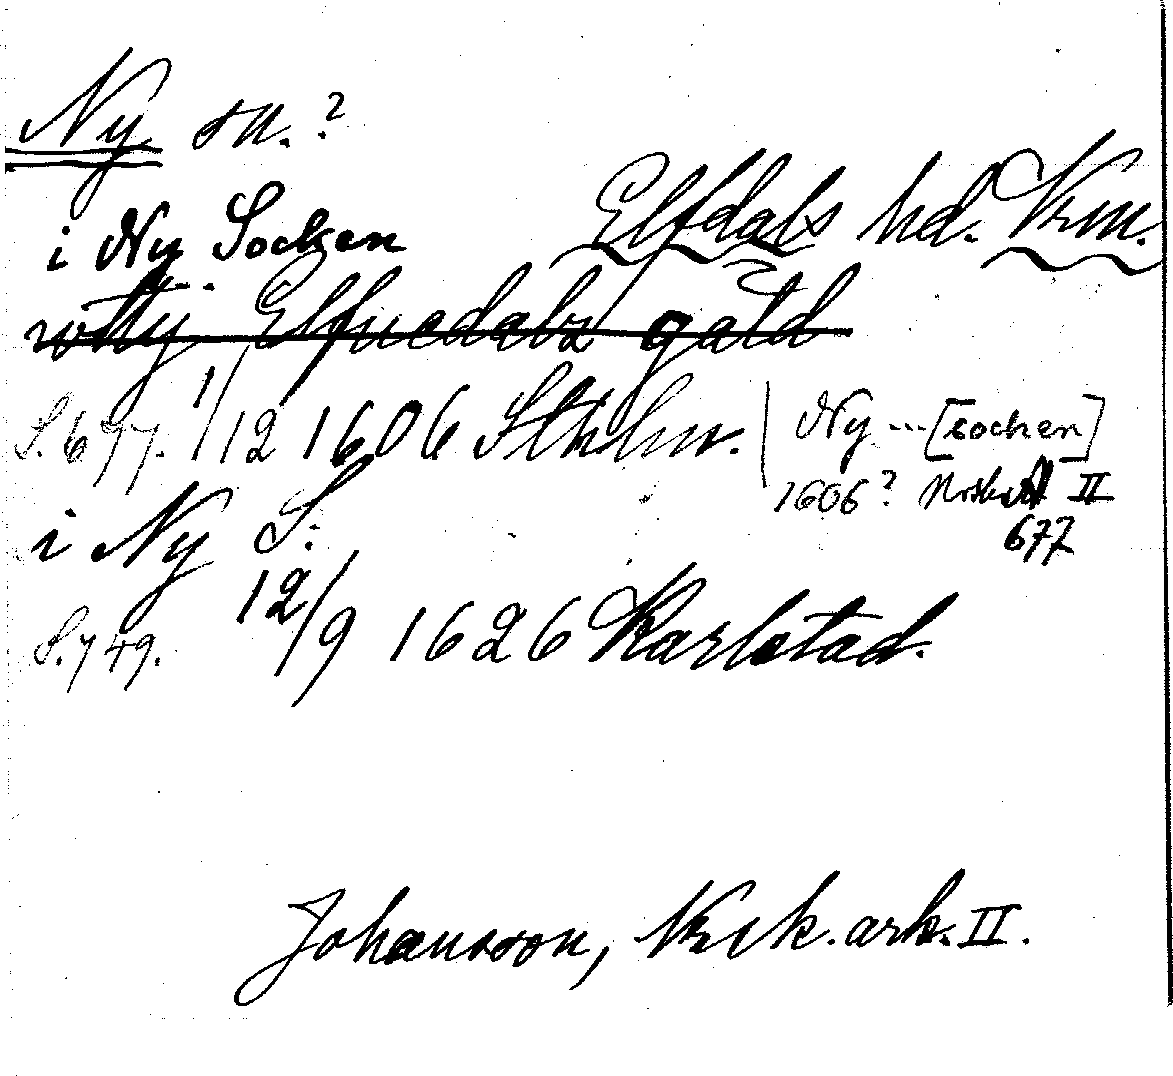 Ny sn.?
Elfdals hd. Vrm.
i Ny Socken
Elfuedalz gäld
S. 677. 1/12 1606 Sthlm.
Ny ... [socken]
1606? Norsk II
677
i Ny S:
S. 749. 12/9 1626 Karlstad.
Johansson, Nosk. ark. II.